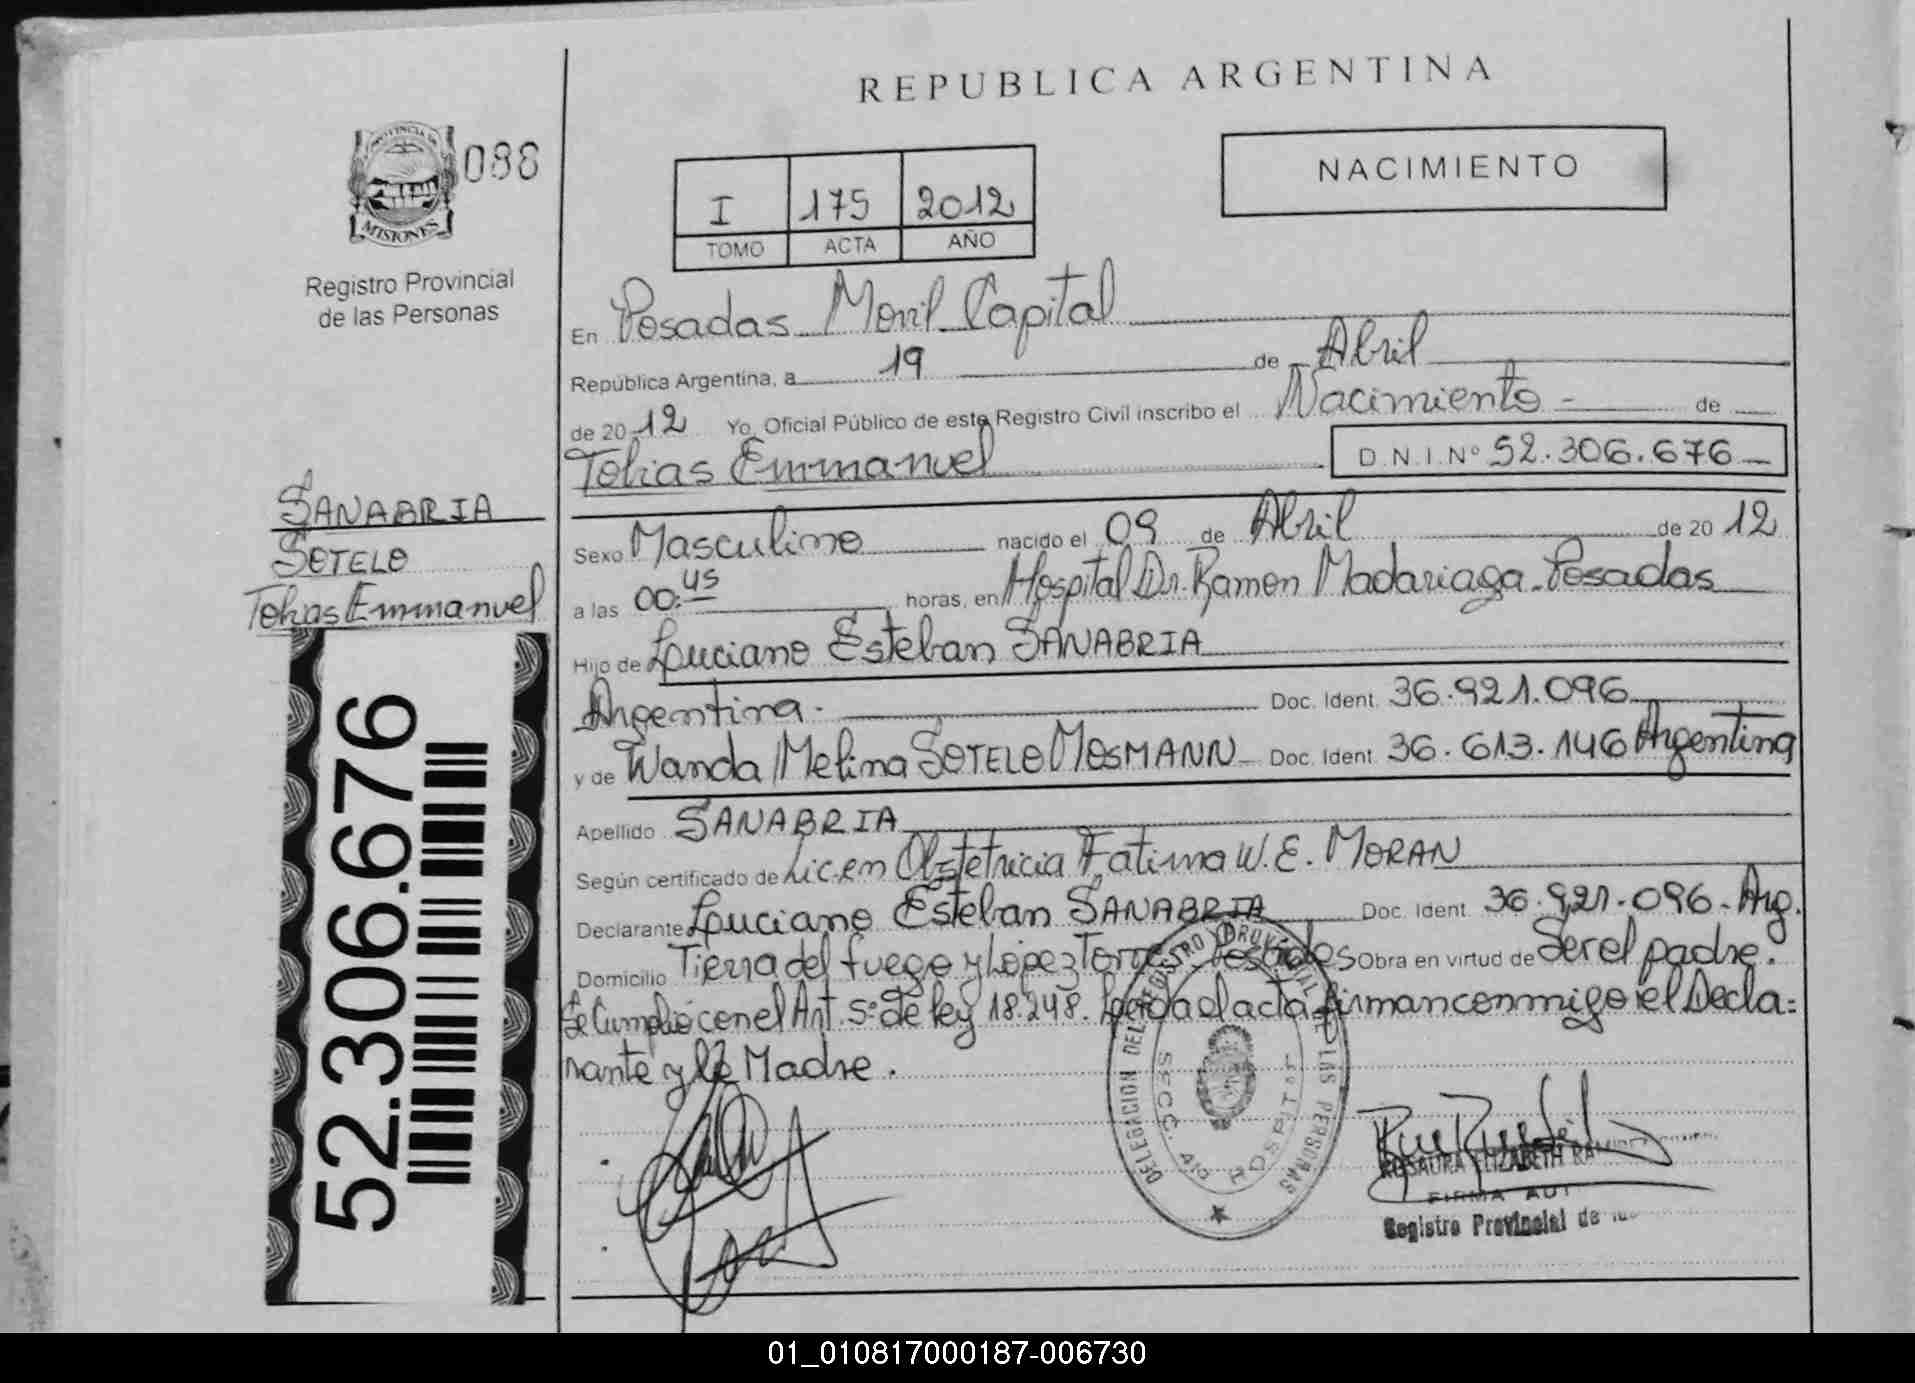 REPUBLICA ARGENTINA
PROVINCIA DE
MISIONES
088
Registro Provincial
de las Personas
I 175 2012
TOMO ACTA AÑO
NACIMIENTO
En Posadas Movil Capital
República Argentina, a 19 de Abril
de 2012 Yo, Oficial Público de este Registro Civil inscribo el Nacimiento - de
Tobias Emmanuel D.N.I.Nº 52.306.676
SANABRIA
SOTELO
Tobias Emmanuel
52.306.676
Sexo Masculino nacido el 09 de Abril de 2012
a las 00:45 horas, en Hospital Dr. Ramon Madariaga - Posadas
Hijo de Luciano Esteban SANABRIA
Argentina - Doc. Ident. 36.921.096
y de Wanda Melina SOTELO MOSMANN Doc. Ident. 36.613.146 Argentina
Apellido SANABRIA
Según certificado de Lic. en Obstetricia Fatima W. E. MORAN
Declarante Luciano Esteban SANABRIA Doc. Ident. 36.921.096 - Arg.
Domicilio Tierra del fuego y Lopez Torres Posadas Obra en virtud de Ser el padre.
Se Cumplió con el Art. 5º de ley 18.248. Leída el acta firman conmigo el Decla=
rante y la Madre.
DELEGACION DEL REGISTRO PROVINCIAL DE LAS PERSONAS
SECC. HOSPITAL
ROSAURA ELIZABETH
FIRMA AUT
Registro Provincial de
01_010817000187-006730